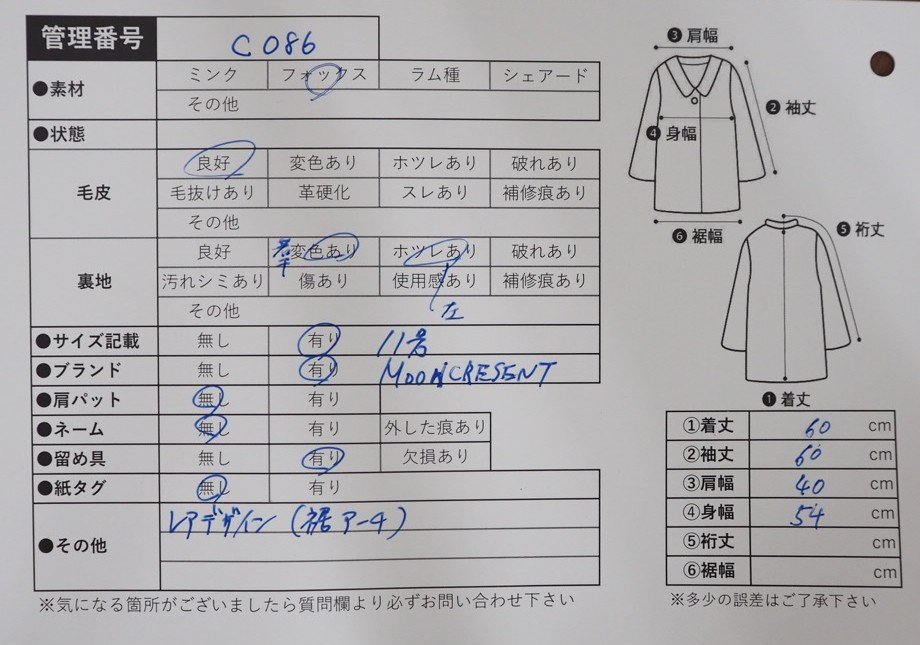 管理番号 C086
●素材 ミンク フォックス ラム種 シェアード
その他
●状態
毛皮 良好 変色あり ホツレあり 破れあり
毛抜けあり 革硬化 スレあり 補修痕あり
その他
裏地 良好 若干 変色あり ホツレあり 破れあり
汚れシミあり 傷あり 使用感あり 補修痕あり
その他 左
●サイズ記載 無し 有り 11号
●ブランド 無し 有り MOONCRESENT
●肩パット 無し 有り
●ネーム 無し 有り 外した痕あり
●留め具 無し 有り 欠損あり
●紙タグ 無し 有り
●その他 レアデザイン(裾アーチ)
※気になる箇所がございましたら質問欄より必ずお問い合わせ下さい
❸肩幅
❷袖丈
❹身幅
❻裾幅
❺裄丈
❶着丈
①着丈 60 cm
②袖丈 60 cm
③肩幅 40 cm
④身幅 54 cm
⑤裄丈 cm
⑥裾幅 cm
※多少の誤差はご了承下さい